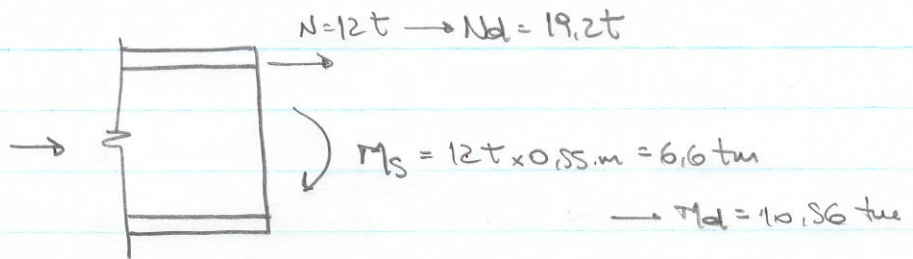 N=12t → Nd = 19,2t
Ms = 12t x 0,55.m = 6,6 tm
→ Md = 10,56 tm